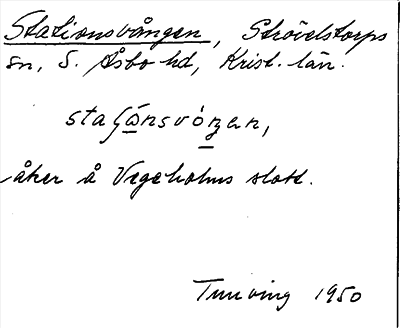 Stationsvången, Strövelstorps
sn, S. Åsbo hd, Krist. län.
åker å Vegeholms slott.
Tunving 1950